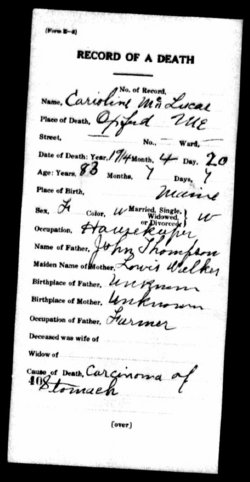 (Form B-2)
RECORD OF A DEATH
No. of Record,
Name, Carioline Mrs Lucas
Place of Death, Oxford ME
Street, No., — Ward,
Date of Death: Year, 1914 Month, 4 Day, 20
Age: Years, 83 Months, 7 Days, 7
Place of Birth, Maine
Sex, F Color, W Married, Single, Widowed, or Divorced W
Occupation, Housekeeper
Name of Father, John Thompson
Maiden Name of Mother, Lovis Walker
Birthplace of Father, Unknown
Birthplace of Mother, Unknown
Occupation of Father, Farmer
Deceased was wife of
Widow of
Cause of Death, Carcinoma of
408 Stomach
(over)